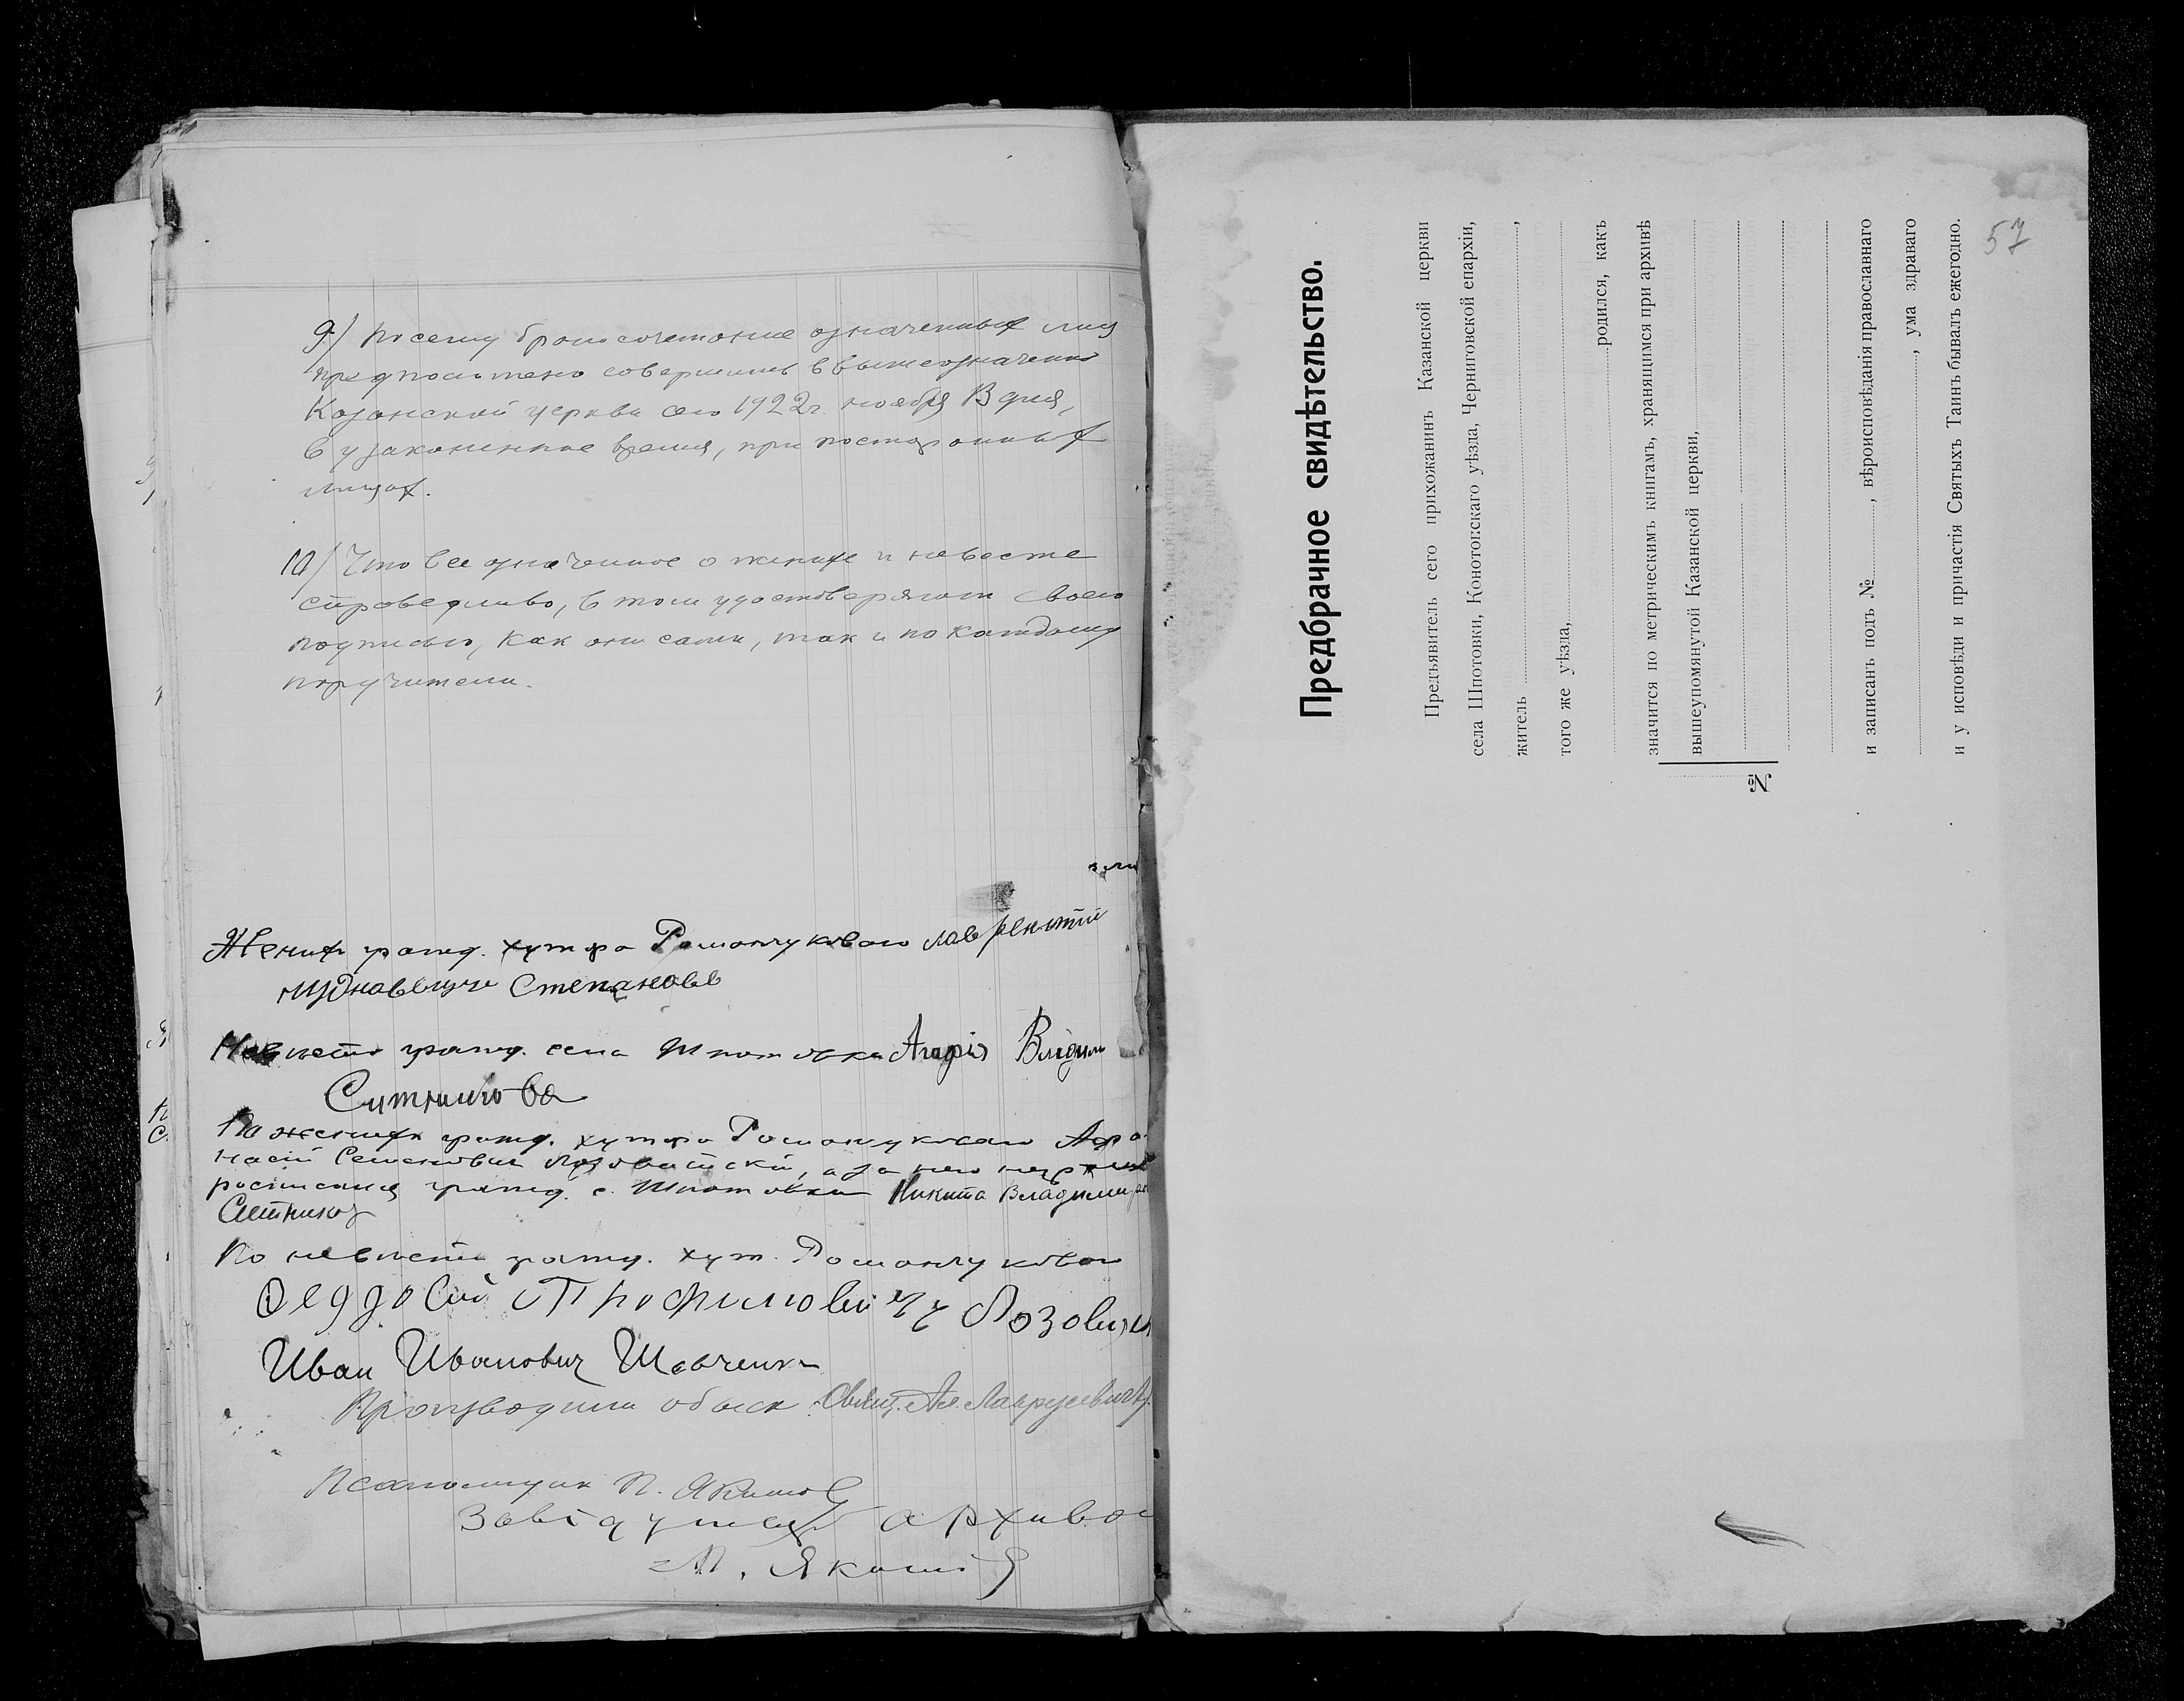 9) Посему бракосочетание означенных лиц
предположено совершить в вышеозначенно
Казанской церкви сего 1922 г. ноября 13 дня,
в узаконенное время, при посторонних
лицах.
10) Что все означенное о женихе и невесте
справедливо, в том удостоверяют своею
подписью, как они сами, так и по каждому
поручители.
Жених гражд. хутора Романчукового Лаврентий
Степанов
Невеста гражд. села Шпотовки
Ситникова
По женихе гражд. хутора Романчукового Афа-
насій Семенович а за него неграм
росписался гражд. с. Шпотовки Никита Владимир
Ситников
По невесте гражд. хут. Романчукового
Федосий Трофимович Лозови
Иван Иванович Шевченко
Производили обыск: Свящ.
Псаломщик П. Якимов
Завідущий архивом
Якимов
57
Предбрачное свидѣтельство.
Предъявитель сего прихожанинъ Казанской церкви
села Шпотовки, Конотопскаго уѣзда, Черниговской епархіи,
житель ,
того же уѣзда,
родился, какъ
значится по метрическимъ книгамъ, хранящимся при архивѣ
вышеупомянутой Казанской церкви,
и записанъ подъ № , вѣроисповѣданія православнаго
, ума здраваго
и у исповѣди и причастія Святыхъ Таинъ бывалъ ежегодно.
№